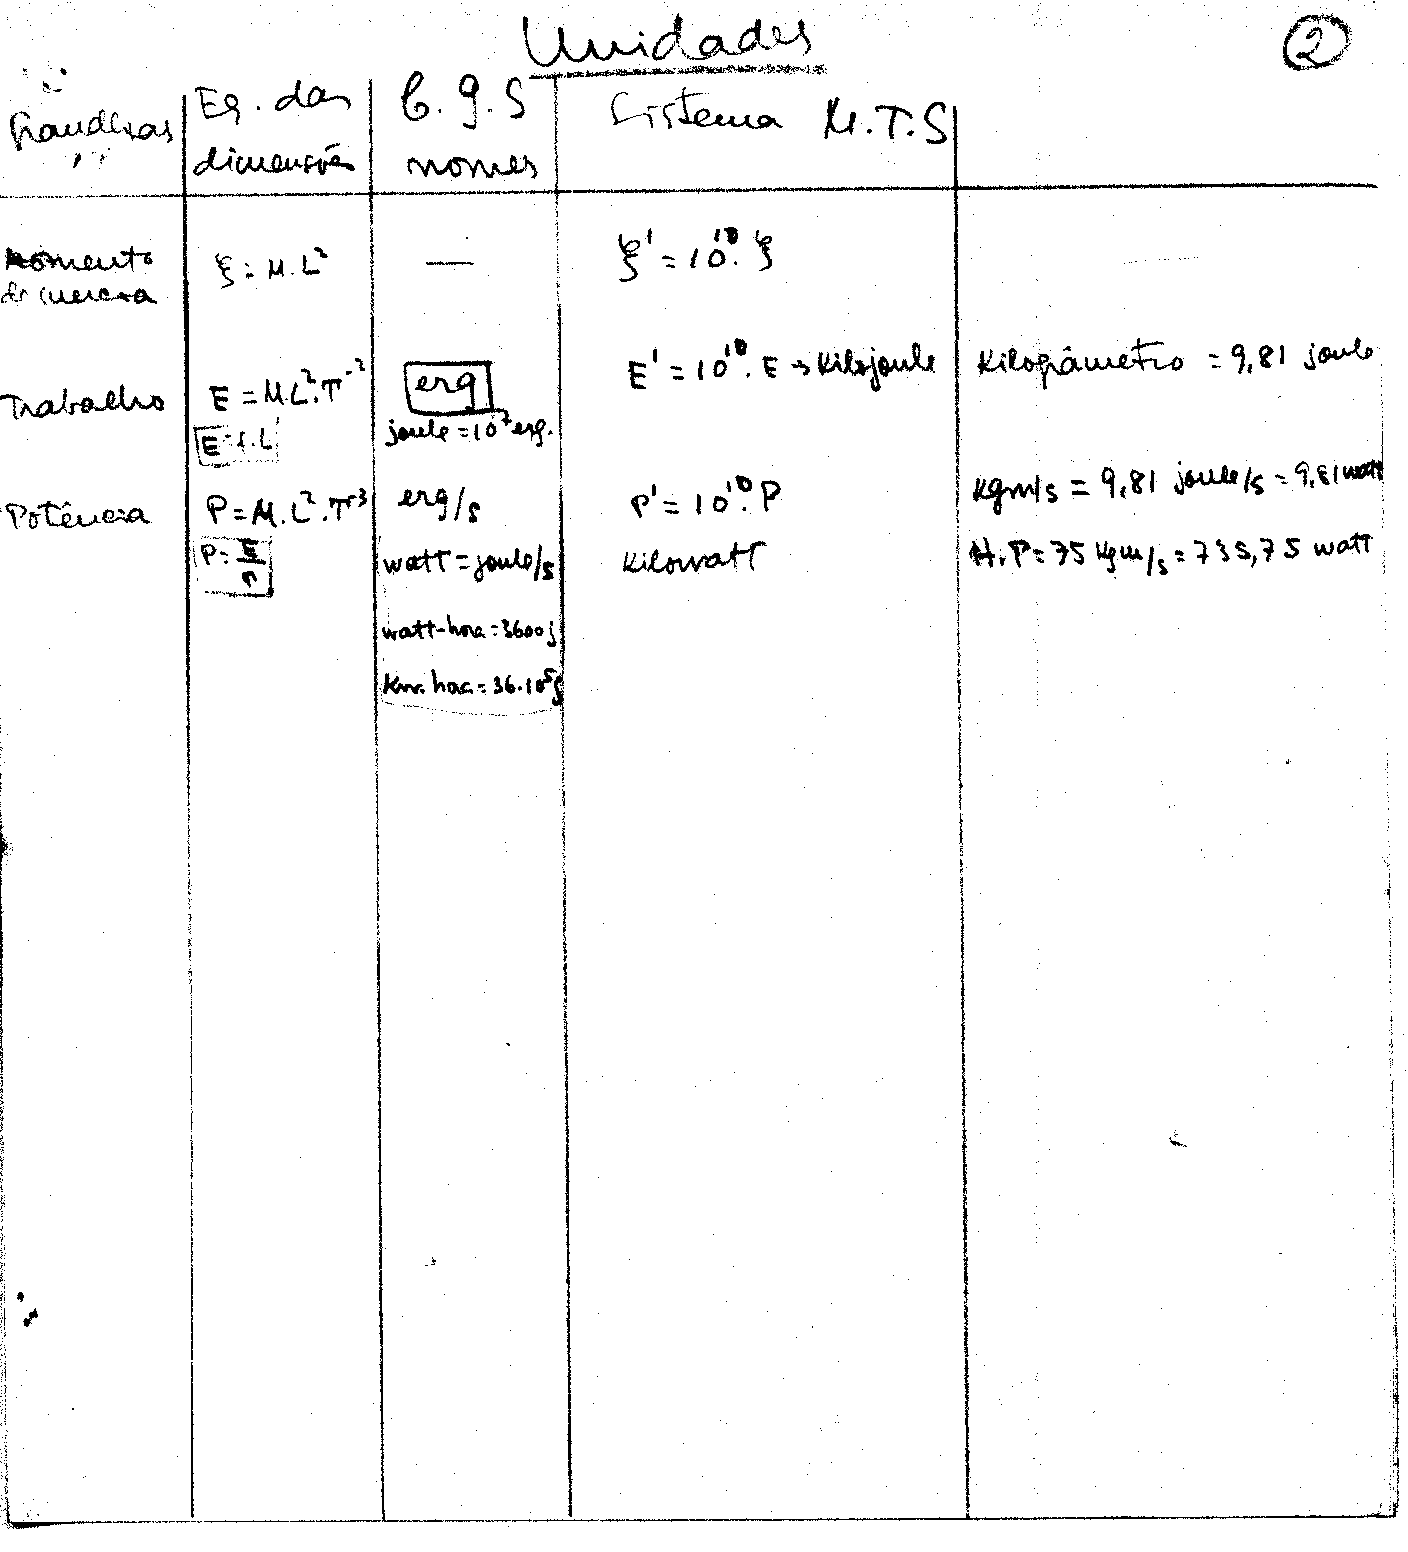 Unidades
2
Grandezas
Eq. das dimensões
C.g.S nomes
Sistema M.T.S
Momento de inercia
ξ = M.L²
—
ξ' = 10¹⁰. ξ
Trabalho
E = M.L².T⁻²
E = f.L
erg
joule = 10⁷ erg.
E' = 10¹⁰. E → Kilojoule
Kilogrâmetro = 9,81 joule
Potência
P = M.L².T⁻³
P = E/T
erg/s
watt = joule/s
watt-hora = 3600 j
Kw. hora = 36.10⁵ j
P' = 10¹⁰. P
Kilowatt
Kgm/s = 9,81 joule/s = 9,81 watt
H.P = 75 Kgm/s = 735,75 watt